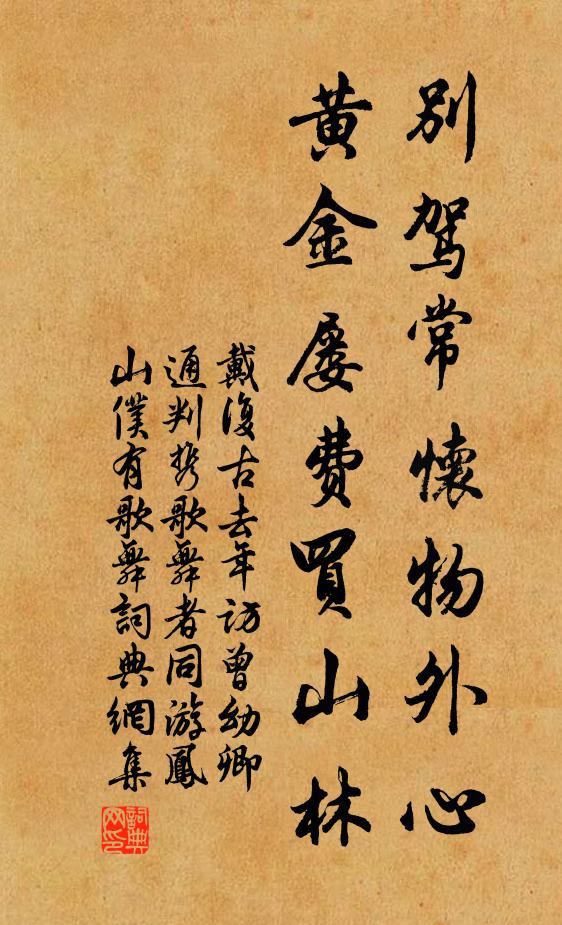 別駕常懷物外心
黃金屢費買山林
戴復古去年訪曾幼卿
通判携歌舞者同游鳳
山僕有歌舞詞典網集
詞典
网印